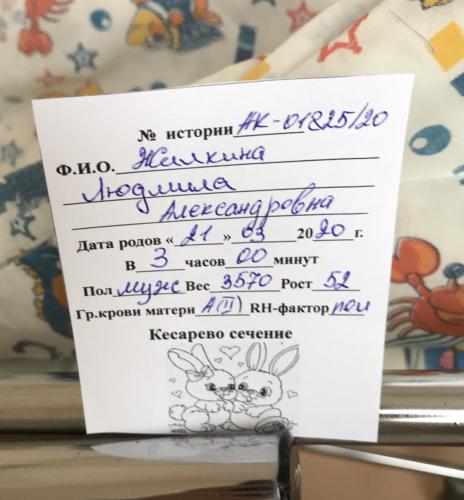 № истории АК-01825/20
Ф.И.О. Жилкина
Людмила
Александровна
Дата родов « 21 » 03 2020 г.
В 3 часов 00 минут
Пол муж Вес 3570 Рост 52
Гр.крови матери А(II) RH-фактор пол
Кесарево сечение